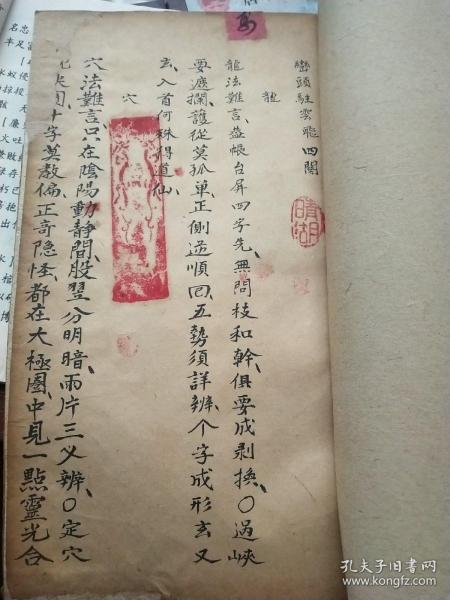 巒頭駐雲飛四闋
龍
龍法難言、蓋帳台屏四字先、無問枝和幹、俱要成剥換、〇過峽
要遮攔、護從莫孤单、正側逆順回、五勢須詳辨、个字成形玄又
玄、入首何殊得道仙、
穴
穴法難言、只在陰陽動静間、股翌分明暗、雨片三义辨、〇定穴
十字莫教偏、正奇隐怪、都在大極圏、中見一點靈光合
晴湖
孔夫子旧书网